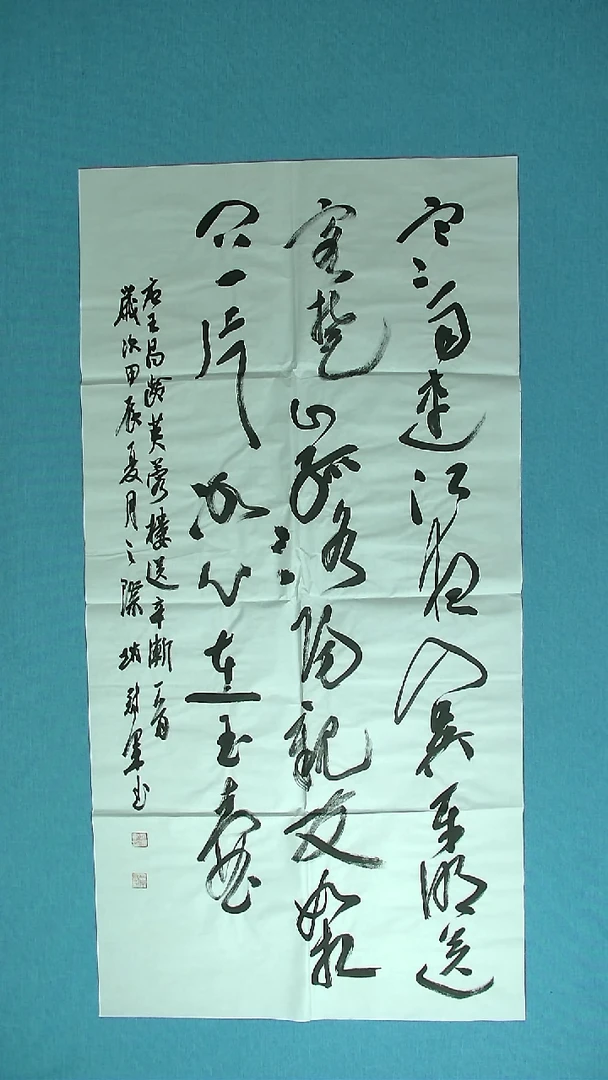 寒雨連江夜入吳平明送
客楚山孤洛陽親友如相
问一片冰心在玉壺
唐王昌齡芙蓉樓送辛漸一首
歲次甲辰夏月之深圳